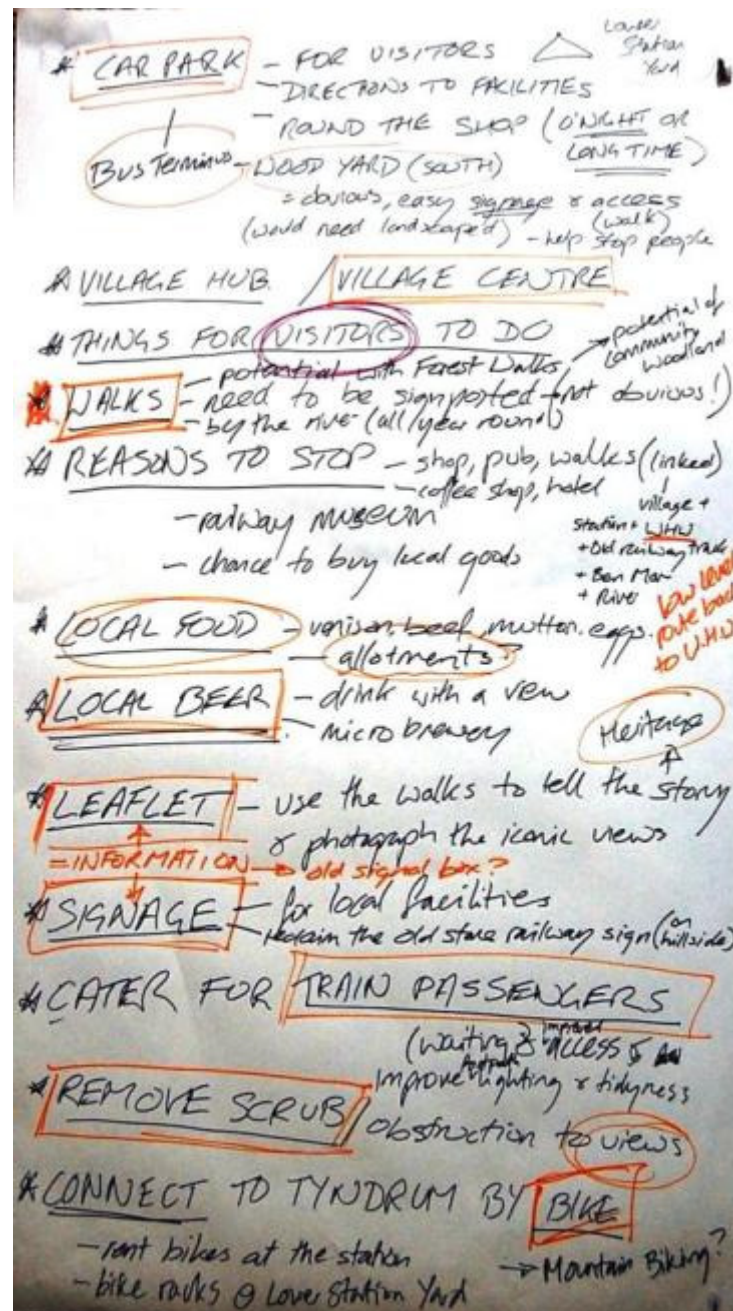 * CAR PARK - FOR VISITORS
Lower Station Yard
- DIRECTIONS TO FACILITIES
- ROUND THE SHOP (O'NIGHT OR LONG TIME)
Bus Terminus - WOOD YARD (SOUTH)
= obvious, easy signage & access (walk)
(would need landscaped) - help stop people
* VILLAGE HUB / VILLAGE CENTRE
* THINGS FOR VISITORS TO DO
* WALKS - potential with Forest Walks, → potential of Community Woodland
- need to be signposted (not obvious!)
- by the river (all/year round)
* REASONS TO STOP - shop, pub, walks (linked)
- coffee shop, hotel
- railway museum
- chance to buy local goods
village +
Station + WHW
+ Old railway track
+ Ben Mor
+ River
low level route back to W.H.W
* LOCAL FOOD - venison, beef, mutton, eggs.
- allotments?
* LOCAL BEER - drink with a view
- micro brewery
Heritage
* LEAFLET - use the walks to tell the story
& photograph the iconic views
= INFORMATION → old signal box?
* SIGNAGE - for local facilities
- reclaim the old stone railway sign (on hillside)
* CATER FOR TRAIN PASSENGERS
(waiting & improved access &
Improve lighting & tidyness
* REMOVE SCRUB / obstruction to views
* CONNECT TO TYNDRUM BY BIKE
- rent bikes at the station
→ Mountain Biking?
- bike racks @ Lower Station Yard